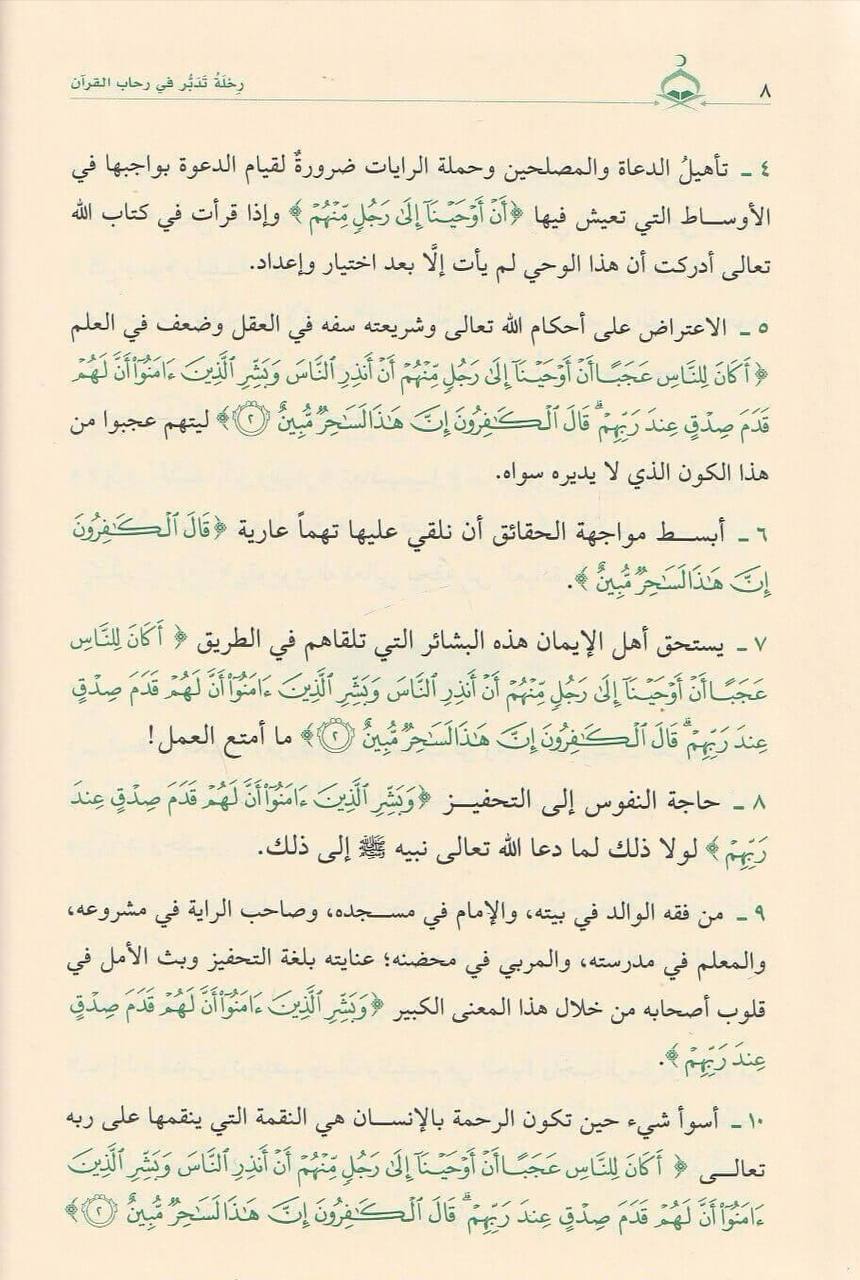 ٨
رِحْلَةُ تَدَبُّر في رحاب القرآن
٤ ـ تأهيلُ الدعاة والمصلحين وحملة الرايات ضرورةٌ لقيام الدعوة بواجبها في
الأوساط التي تعيش فيها ﴿أَنْ أَوْحَيْنَآ إِلَىٰ رَجُلٍ مِّنْهُمْ﴾ وإذا قرأت في كتاب الله
تعالى أدركت أن هذا الوحي لم يأت إلَّا بعد اختيار وإعداد.
٥ ـ الاعتراض على أحكام الله تعالى وشريعته سفه في العقل وضعف في العلم
﴿أَكَانَ لِلنَّاسِ عَجَبًا أَنْ أَوْحَيْنَآ إِلَىٰ رَجُلٍ مِّنْهُمْ أَنْ أَنذِرِ ٱلنَّاسَ وَبَشِّرِ ٱلَّذِينَ ءَامَنُوٓا۟ أَنَّ لَهُمْ
قَدَمَ صِدْقٍ عِندَ رَبِّهِمْ ۗ قَالَ ٱلْكَـٰفِرُونَ إِنَّ هَـٰذَا لَسَـٰحِرٌ مُّبِينٌ ٢﴾ ليتهم عجبوا من
هذا الكون الذي لا يديره سواه.
٦ ـ أبسط مواجهة الحقائق أن نلقي عليها تهماً عارية ﴿قَالَ ٱلْكَـٰفِرُونَ
إِنَّ هَـٰذَا لَسَـٰحِرٌ مُّبِينٌ﴾.
٧ ـ يستحق أهل الإيمان هذه البشائر التي تلقاهم في الطريق ﴿أَكَانَ لِلنَّاسِ
عَجَبًا أَنْ أَوْحَيْنَآ إِلَىٰ رَجُلٍ مِّنْهُمْ أَنْ أَنذِرِ ٱلنَّاسَ وَبَشِّرِ ٱلَّذِينَ ءَامَنُوٓا۟ أَنَّ لَهُمْ قَدَمَ صِدْقٍ
عِندَ رَبِّهِمْ ۗ قَالَ ٱلْكَـٰفِرُونَ إِنَّ هَـٰذَا لَسَـٰحِرٌ مُّبِينٌ ٢﴾ ما أمتع العمل!
٨ ـ حاجة النفوس إلى التحفيز ﴿وَبَشِّرِ ٱلَّذِينَ ءَامَنُوٓا۟ أَنَّ لَهُمْ قَدَمَ صِدْقٍ عِندَ
رَبِّهِمْ﴾ لولا ذلك لما دعا الله تعالى نبيه ﷺ إلى ذلك.
٩ ـ من فقه الوالد في بيته، والإمام في مسجده، وصاحب الراية في مشروعه،
والمعلم في مدرسته، والمربي في محضنه؛ عنايته بلغة التحفيز وبث الأمل في
قلوب أصحابه من خلال هذا المعنى الكبير ﴿وَبَشِّرِ ٱلَّذِينَ ءَامَنُوٓا۟ أَنَّ لَهُمْ قَدَمَ صِدْقٍ
عِندَ رَبِّهِمْ﴾.
١٠ ـ أسوأ شيء حين تكون الرحمة بالإنسان هي النقمة التي ينقمها على ربه
تعالى ﴿أَكَانَ لِلنَّاسِ عَجَبًا أَنْ أَوْحَيْنَآ إِلَىٰ رَجُلٍ مِّنْهُمْ أَنْ أَنذِرِ ٱلنَّاسَ وَبَشِّرِ ٱلَّذِينَ
ءَامَنُوٓا۟ أَنَّ لَهُمْ قَدَمَ صِدْقٍ عِندَ رَبِّهِمْ ۗ قَالَ ٱلْكَـٰفِرُونَ إِنَّ هَـٰذَا لَسَـٰحِرٌ مُّبِينٌ ٢﴾